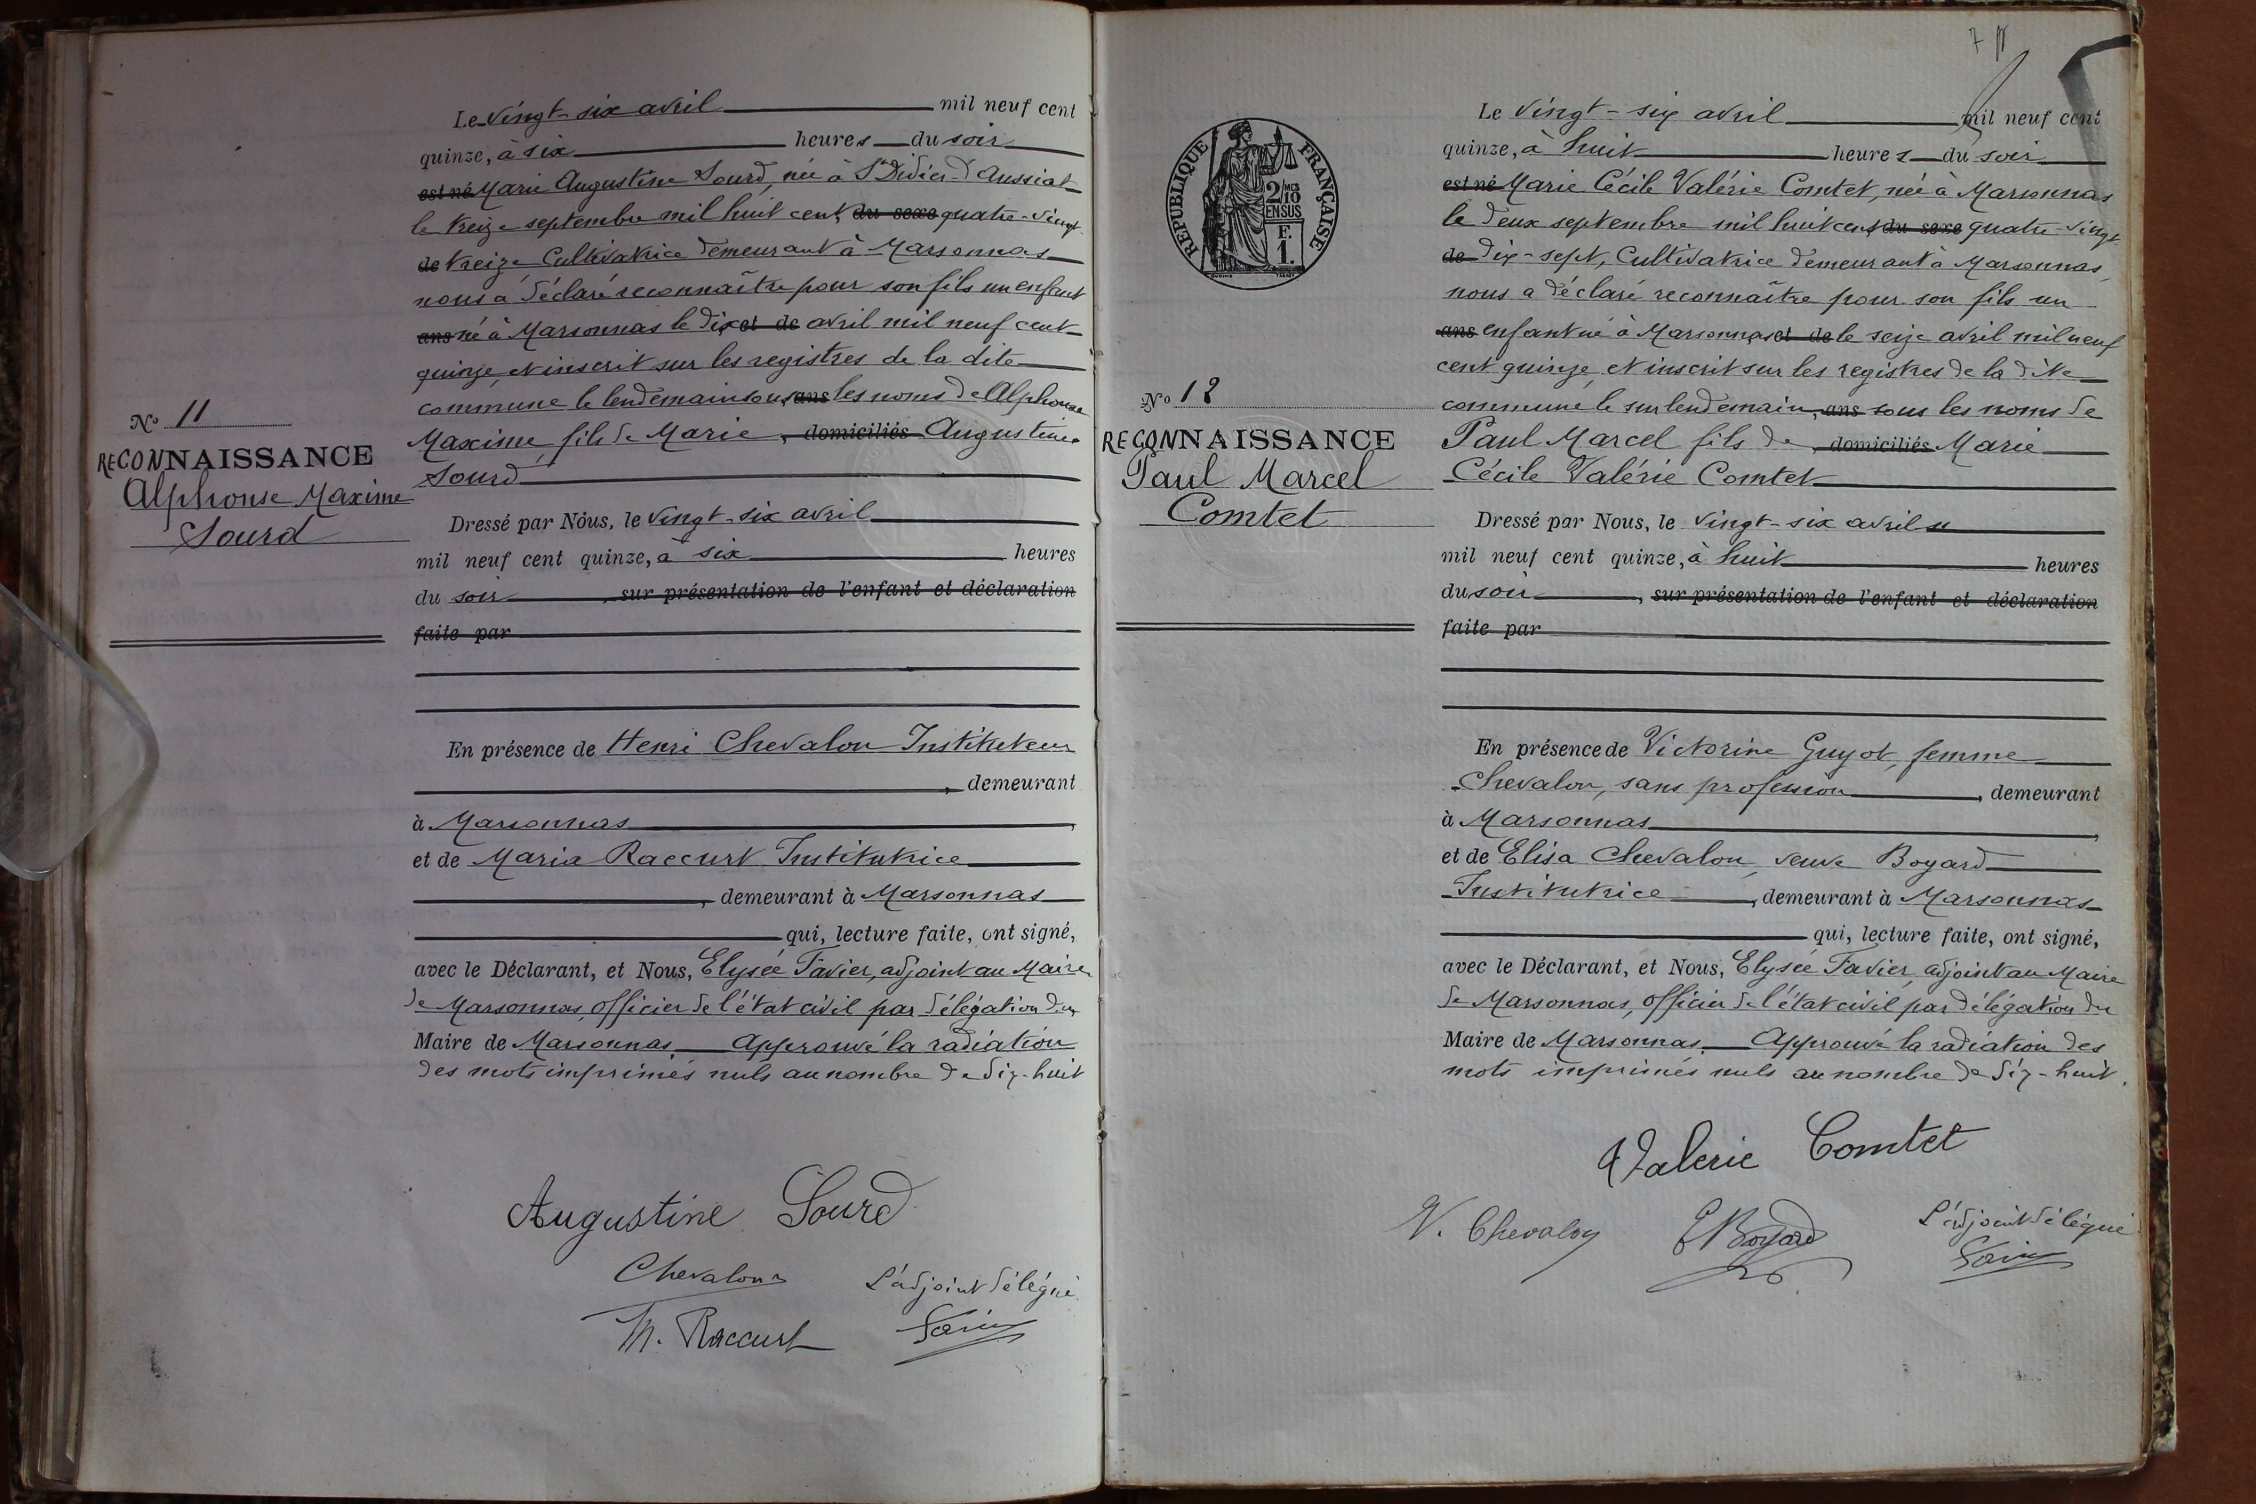 Le vingt-six avril mil neuf cent
quinze, à six heures du soir
est né Marie Augustine Sourd, née à St Didier-d'Aussiat
le treize septembre mil huit cent du sexe quatre-vingt
de treize Cultivatrice demeurant à Marsonnas
nous a déclaré reconnaître pour son fils un enfant
ans né à Marsonnas le dix et de avril mil neuf cent
quinze, et inscrit sur les registres de la dite
commune le lendemain sous ans les noms de Alphonse
Maxime, fils de Marie, domiciliés Augustine
Sourd
No 11
RECONNAISSANCE
Alphonse Maxime
Sourd
Dressé par Nous, le vingt-six avril
mil neuf cent quinze, à six heures
du soir, sur présentation de l'enfant et déclaration
faite par
En présence de Henri Chevalon Instituteur
, demeurant
à Marsonnas,
et de Maria Raccurt Institutrice
, demeurant à Marsonnas
qui, lecture faite, ont signé,
avec le Déclarant, et Nous, Elysée Favier, adjoint au Maire
de Marsonnas, officier de l'état civil par délégation du
Maire de Marsonnas. Approuvé la radiation
des mots imprimés nuls au nombre de dix-huit
Augustine Sourd
Chevalon
L'adjoint délégué
M. Raccurt
Favier
7
RÉPUBLIQUE FRANÇAISE
2/10 MES
EN SUS
F.
1.
Le vingt-six avril mil neuf cent
quinze, à huit heures du soir
est né Marie Cécile Valérie Comtet, née à Marsonnas
le deux septembre mil huit cent du sexe quatre-vingt
de dix-sept, Cultivatrice demeurant à Marsonnas,
nous a déclaré reconnaître pour son fils un
ans enfant né à Marsonnas et de le seize avril mil neuf
cent quinze, et inscrit sur les registres de la dite
commune le surlendemain, ans sous les noms de
Paul Marcel fils de, domiciliés Marie
Cécile Valérie Comtet
No 12
RECONNAISSANCE
Paul Marcel
Comtet
Dressé par Nous, le vingt-six avril
mil neuf cent quinze, à huit heures
du soir, sur présentation de l'enfant et déclaration
faite par
En présence de Victorine Guyot, femme
Chevalon, sans profession, demeurant
à Marsonnas,
et de Elisa Chevalon, veuve Boyard
Institutrice, demeurant à Marsonnas
qui, lecture faite, ont signé,
avec le Déclarant, et Nous, Elysée Favier, adjoint au Maire
de Marsonnas, officier de l'état civil par délégation du
Maire de Marsonnas. Approuvé la radiation des
mots imprimés nuls au nombre de dix-huit.
Valerie Comtet
V. Chevalon
E Boyard
L'adjoint délégué
Favier